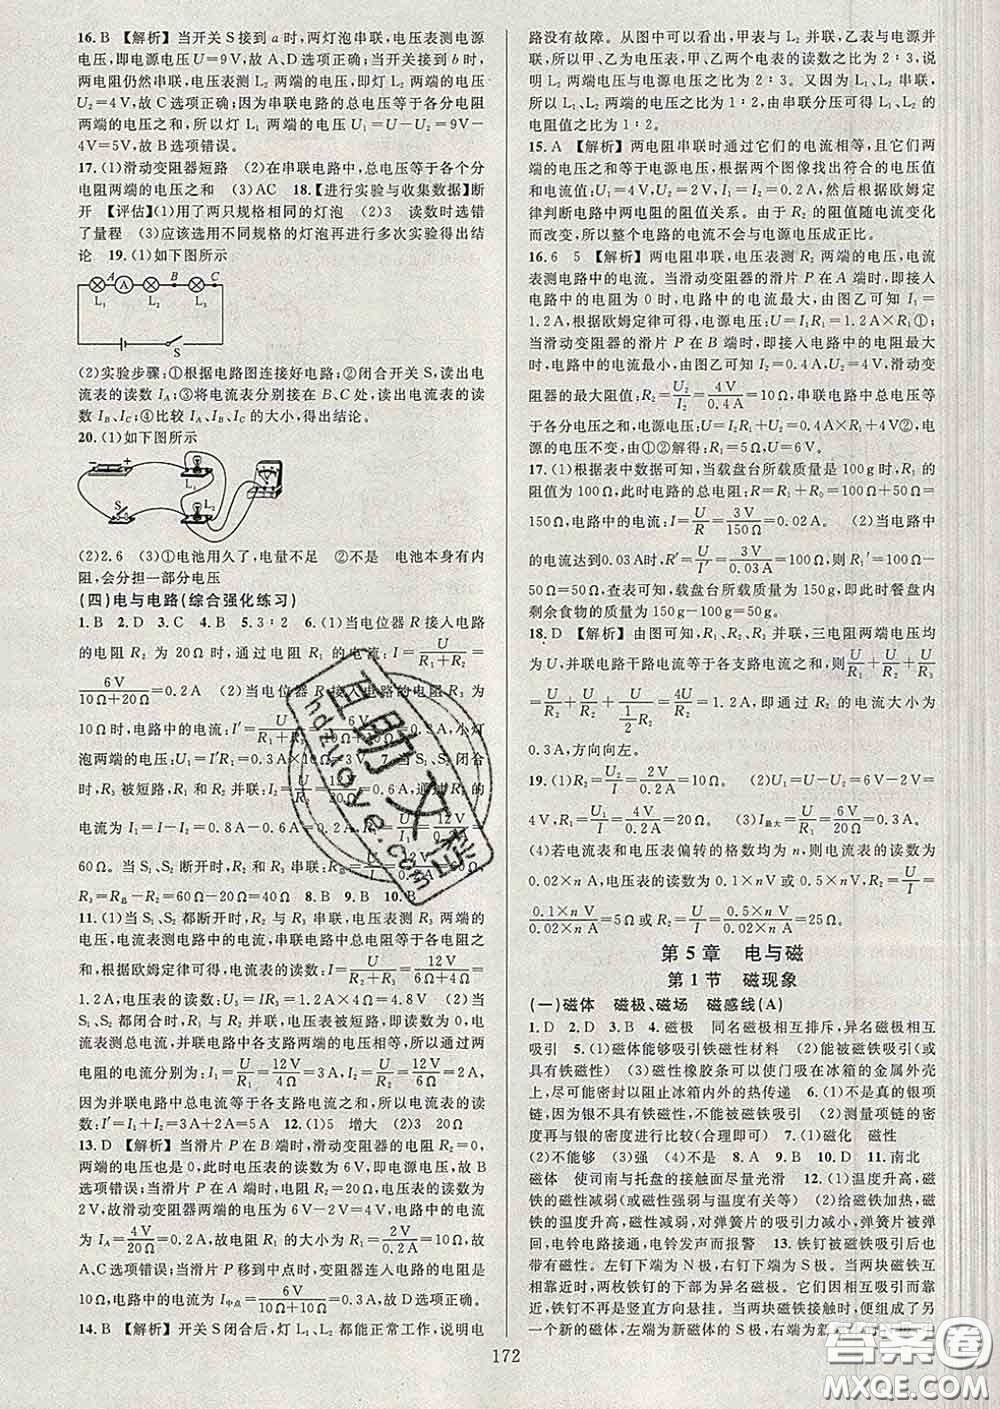 16. B 【解析】当开关S接到a时,两灯泡串联,电压表测电源
电压,即电源电压U=9V,故A、D选项正确;当开关接到b时,
两电阻仍然串联,电压表测L₂两端的电压,即灯L₂两端的电压
U₂=4V,故C选项正确;因为串联电路的总电压等于各分电阻
两端的电压之和,所以灯L₁两端的电压U₁=U-U₂=9V-
4V=5V,故B选项错误。
17. (1)滑动变阻器短路 (2)在串联电路中,总电压等于各个分
电阻两端的电压之和 (3)AC 18.【进行实验与收集数据】断
开 【评估】(1)用了两只规格相同的灯泡 (2)3 读数时选错
了量程 (3)应该选用不同规格的灯泡再进行多次实验得出结
论 19. (1)如下图所示
A B C
L₁ A L₂ L₃
S
(2)实验步骤:①根据电路图连接好电路;②闭合开关S,读出电
流表的读数I_A;③将电流表分别接在B、C处,读出电流表的读
数I_B、I_C;④比较I_A、I_B、I_C的大小,得出结论。
20. (1)如下图所示
L₁
S L₂
(2)2.6 (3)①电池用久了,电量不足 ②不是 电池本身有内
阻,会分担一部分电压
(四)电与电路(综合强化练习)
1. B 2. D 3. C 4. B 5. 3∶2 6. (1)当电位器R接入电路
的电阻R₂为20Ω时,通过电阻R₁的电流:I=U/(R₁+R₂)=
6V/(10Ω+20Ω)=0.2A (2)当电位器R接入电路的电阻R₃为
10Ω时,电路中的电流:I′=U/(R₁+R₃)=6V/(10Ω+10Ω)=0.3A,小灯
泡两端的电压:U₁=I′R₁=0.3A×10Ω=3V 7. 当S₁、S₂闭合
时,R₃被短路,R₁和R₂并联:I₂=U/R₂=12V/20Ω=0.6A,通过R₁的
电流为I₁=I-I₂=0.8A-0.6A=0.2A,R₁=U/I₁=12V/0.2A=
60Ω。当S₁、S₂断开时,R₂和R₃串联:R总=U/I=12V/0.2A=60Ω,
R₃=R总-R₂=60Ω-20Ω=40Ω 8. B 9. B 10. B
11. (1)当S₁、S₂都断开时,R₂与R₃串联,电压表测R₃两端的
电压,电流表测电路中的电流,串联电路中总电阻等于各分电阻
之和,根据欧姆定律可得,电流表的读数:I=U/(R₂+R₃)=12V/(6Ω+4Ω)=
1.2A,电压表的读数:U₃=IR₃=1.2A×4Ω=4.8V (2)当
S₁、S₂都闭合时,R₁与R₃并联,电压表被短路,即读数为0,电流
表测干路电流,并联电路中各支路两端的电压相等,所以通过两
电阻的电流分别为:I₃=U/R₃=12V/4Ω=3A,I₁=U/R₁=12V/6Ω=2A,
因为并联电路中总电流等于各支路电流之和,所以电流表的读
数:I′=I₁+I₃=3A+2A=5A 12. (1)5 增大 (2)3 20Ω
13. D 【解析】当滑片P在B端时,滑动变阻器的电阻R₂=0,
两端的电压也是0,此时电压表的读数为6V,即电源电压,故B
选项错误;当滑片P在A端时,R₂=20Ω,电压表的读数为
2V,故滑动变阻器两端的电压为6V-2V=4V,电路中的电流
为I_A=4V/20Ω=0.2A,故电阻R₁的大小为R₁=2V/0.2A=10Ω,
故A、C选项错误;当滑片P移到中点时,变阻器连入电路的电阻是
10Ω,故电路中的电流为I中点=6V/(10Ω+10Ω)=0.3A,故D选项正确。
14. B 【解析】开关S闭合后,灯L₁、L₂都能正常工作,说明电
路没有故障。从图中可以看出,甲表与L₂并联,乙表与电源并
联,所以甲、乙为电压表,甲、乙两个电表的读数之比为2∶3,说
明L₂两端电压与电源电压之比为2∶3。又因为L₁、L₂串联,
所以L₁、L₂两端的电压之比为1∶2,由串联分压可得L₁、L₂的
电阻值之比为1∶2。
15. A 【解析】两电阻串联时通过它们的电流相等,且它们两
端的电压之和等于电源电压,根据两个图像找出符合的电压值
和电流值:U₁=4V,U₂=2V,I₁=I₂=0.2A,然后根据欧姆定
律判断电路中两电阻的阻值关系。由于R₂的阻值随电流变化
而改变,所以整个电路的电流不会与电源电压成正比。
16. 6 5 【解析】两电阻串联,电压表测R₂两端的电压,电流
表测电路中的电流。当滑动变阻器的滑片P在A端时,即接入
电路中的电阻为0时,电路中的电流最大,由图乙可知I₁=
1.2A,根据欧姆定律可得,电源电压:U=I₁R₁=1.2A×R₁①;
当滑动变阻器的滑片P在B端时,即接入电路中的电阻最大
时,电路中的电流最小,由图乙可知I₂=0.4A,U₂=4V,滑动变
阻器的最大阻值:R₂=U₂/I₂=4V/0.4A=10Ω,串联电路中总电压等
于各分电压之和,电源电压:U=I₂R₁+U₂=0.4A×R₁+4V②,电
源的电压不变,由①②解得:R₁=5Ω,U=6V。
17. (1)根据表中数据可知,当载盘台所载质量是100g时,R₁
的阻值为100Ω,此时电路的总电阻:R=R₁+R₀=100Ω+50Ω=
150Ω,电路中的电流:I=U/R=3V/150Ω=0.02A。 (2)当电路中
的电流达到0.03A时,R′=U/I′=3V/0.03A=100Ω,则R₁′=100Ω
-50Ω=50Ω,由表格可知,此时载盘台所载质量为150g,即餐盘内
剩余食物的质量为150g-100g=50g。
18. D 【解析】由图可知,R₁、R₂、R₃并联,三电阻两端电压均
为U,并联电路干路电流等于各支路电流之和,则U/R₁+U/R₂+U/R₃
=U/R₁+U/(½R₁)+U/R₁=4U/R₁=1.2A,即通过R₂的电流大小为
0.3A,方向向左。
19. (1)R₂=U₂/I=2V/0.1A=20Ω。 (2)U₁=U-U₂=6V-2V=
4V,R₁=U₁/I=4V/0.2A=20Ω。 (3)I最大=U/R₁=6V/20Ω=0.3A。
(4)若电流表和电压表偏转的格数均为n,则电流表的读数为
0.02×n A,电压表的读数为0.1×n V或0.5×n V,R₂=U/I=
0.1×n V/0.02×n A=5Ω或R₂=0.5×n V/0.02×n A=25Ω。
第5章 电与磁
第1节 磁现象
(一)磁体 磁极、磁场 磁感线(A)
1. D 2. D 3. B 4. 磁极 同名磁极相互排斥,异名磁极相互
吸引 5. (1)磁体能够吸引铁磁性材料 (2)能被磁铁吸引(或
具有铁磁性) (3)磁性橡胶条可以使门吸在冰箱的金属外壳
上,尽可能密封以阻止冰箱内外的热传递 6. (1)不是真的银项
链,因为银不具有铁磁性,不能被磁铁吸引 (2)测量项链的密
度再与银的密度进行比较(合理即可) 7. (1)磁化 磁性
(2)不能够 (3)强 (4)不同 8. A 9. B 10. D 11. 南北
磁体 使司南与托盘的接触面尽量光滑 12. (1)温度升高,磁
铁的磁性减弱(或磁性强弱与温度有关等) (2)给磁铁加热,磁
铁的温度升高,磁性减弱,对弹簧片的吸引力减小,弹簧片被弹
回,电铃电路接通,电铃发声而报警 13. 铁钉被磁铁吸引后也
带有磁性。左钉下端为N极,右钉下端为S极。当两块磁铁互
相靠近时,两枚铁钉的下部为异名磁极。它们因相互吸引而靠
近,铁钉不再是竖直方向悬挂。当两块磁铁接触时,便组成了另
一个新的磁体,左端为新磁体的S极,右端为新
172
互助文档
hdzuoye.com
答案圈
MXQE.COM